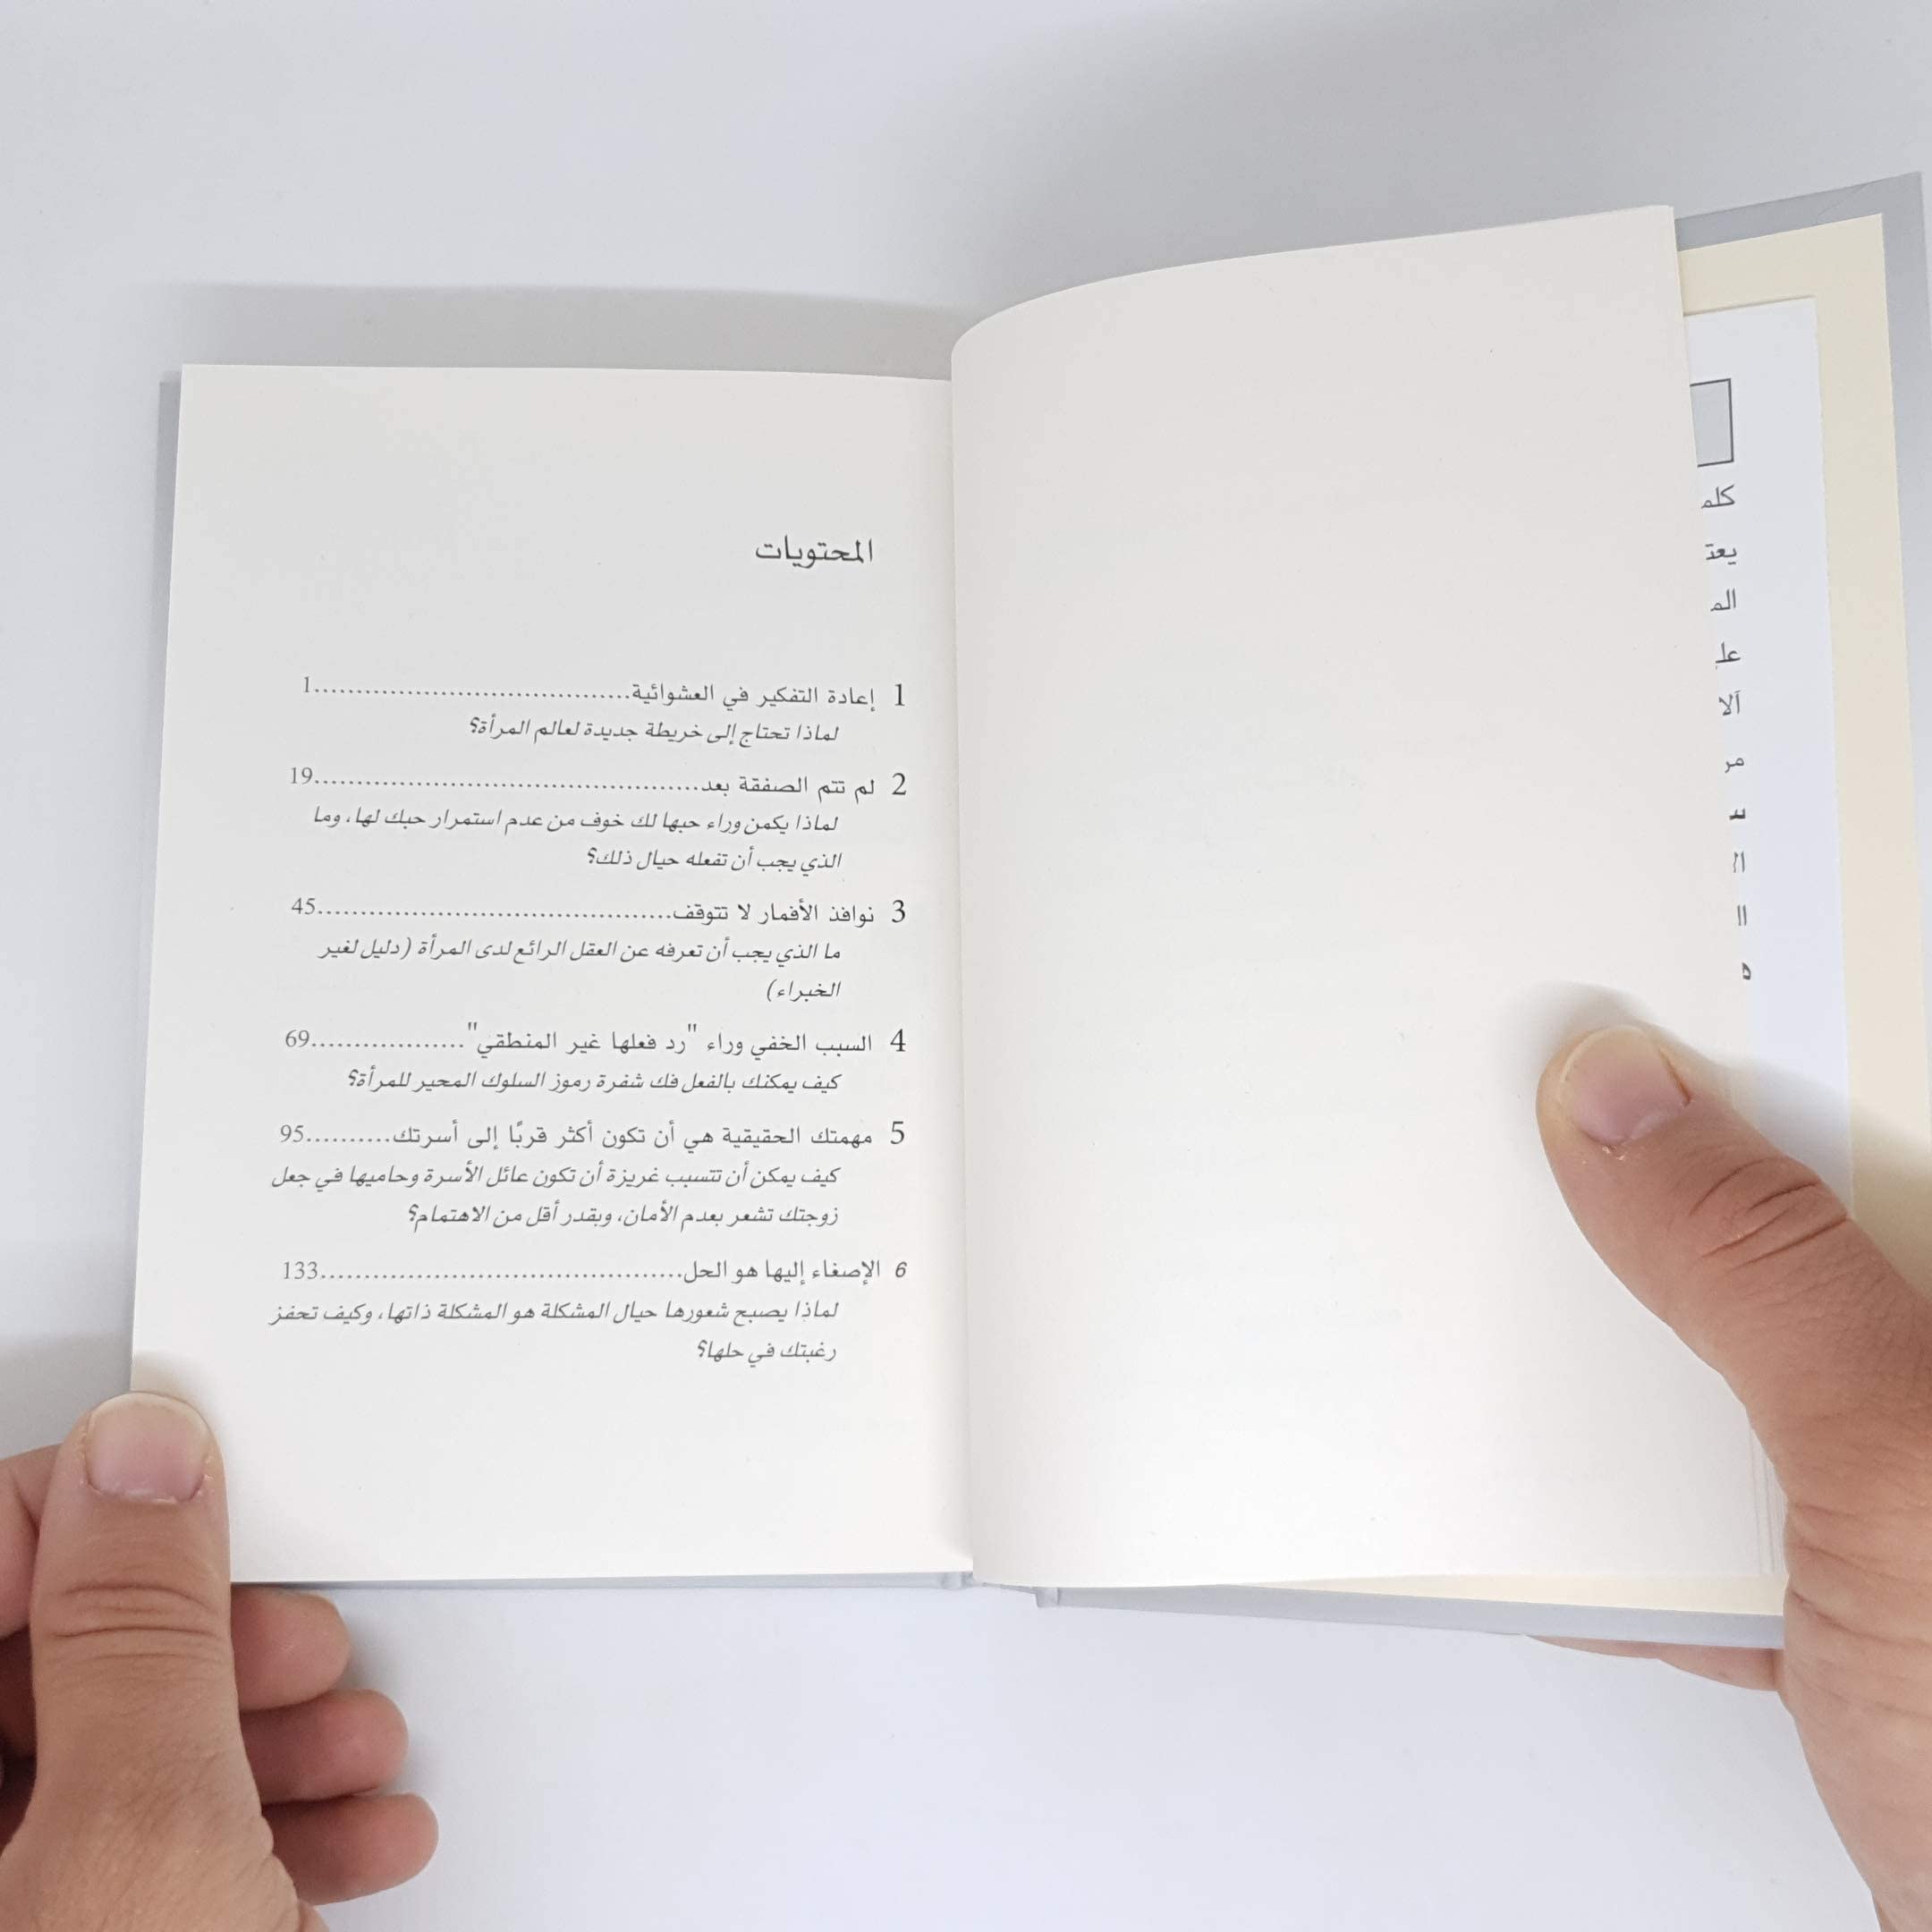 المحتويات
1 إعادة التفكير في العشوائية.....................................1
لماذا تحتاج إلى خريطة جديدة لعالم المرأة؟
2 لم تتم الصفقة بعد.............................................19
لماذا يكمن وراء حبها لك خوف من عدم استمرار حبك لها، وما
الذي يجب أن تفعله حيال ذلك؟
3 نوافذ الأفمار لا تتوقف..........................................45
ما الذي يجب أن تعرفه عن العقل الرائع لدى المرأة (دليل لغير
الخبراء)
4 السبب الخفي وراء "رد فعلها غير المنطقي"..................69
كيف يمكنك بالفعل فك شفرة رموز السلوك المحير للمرأة؟
5 مهمتك الحقيقية هي أن تكون أكثر قربًا إلى أسرتك..........95
كيف يمكن أن تتسبب غريزة أن تكون عائل الأسرة وحاميها في جعل
زوجتك تشعر بعدم الأمان، وبقدر أقل من الاهتمام؟
6 الإصغاء إليها هو الحل..........................................133
لماذا يصبح شعورها حيال المشكلة هو المشكلة ذاتها، وكيف تحفز
رغبتك في حلها؟